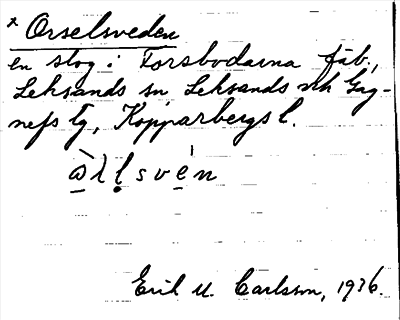 * Orselsveden
en skog i Forsbodarna fäb.,
Leksands sn Leksands och Gag-
nefs tg, Kopparbergs l.
Erik U. Carlsson, 1936.